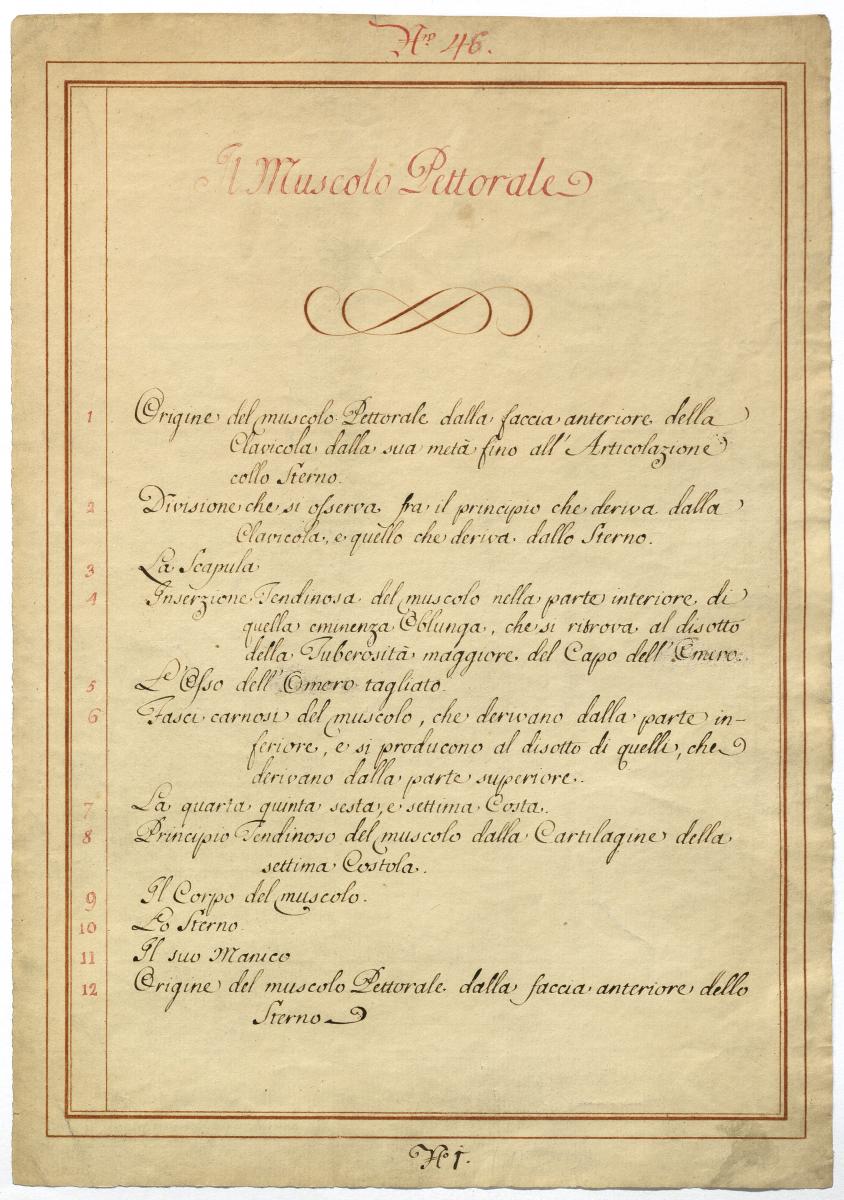 Nro 46.
Il Muscolo Pettorale
1 Origine del muscolo Pettorale dalla faccia anteriore della
Clavicola dalla sua metà fino all'Articolazione
collo Sterno.
2 Divisione che si osserva fra il principio che deriva dalla
Clavicola, e quello che deriva dallo Sterno.
3 La Scapula
4 Inserzione Tendinosa del muscolo nella parte interiore di
quella eminenza Oblunga, che si ritrova al disotto
della Tuberosità maggiore del Capo dell'Omero.
5 L'Osso dell'Omero tagliato.
6 Fasci carnosi del muscolo, che derivano dalla parte in-
feriore, e si producono al disotto di quelli, che
derivano dalla parte superiore.
7 La quarta quinta sesta, e settima Costa.
8 Principio Tendinoso del muscolo dalla Cartilagine della
settima Costola.
9 Il Corpo del muscolo.
10 Lo Sterno.
11 Il suo Manico
12 Origine del muscolo Pettorale dalla faccia anteriore dello
Sterno
No 1.